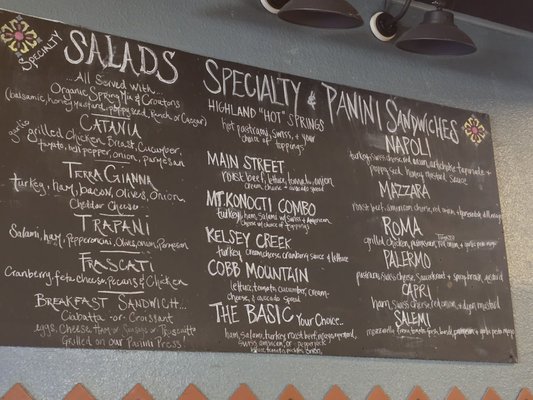 SPECIALTY SALADS
...All Served with...
Organic Spring Mix & Croutons
(balsamic, honey mustard, poppyseed, Ranch or Caesar)
CATANIA
garlic grilled Chicken Breast, Cucumber,
tomato, bell pepper, onion, parmesan
TERRA GIANNA
turkey, ham, bacon, Olives, Onion
Cheddar Cheese
TRAPANI
Salami, ham, Pepperoncini, Olives, onion, Parmesan
FRASCATI
Cranberry, feta cheese, Pecans & Chicken
BREAKFAST SANDWICH...
Ciabatta or Croissant
eggs, Cheese, Ham or Sausage or Prosciutto
Grilled on our Panini Press!
SPECIALTY & PANINI SANDWICHES
HIGHLAND "HOT" SPRINGS
hot pastrami, swiss, & your
choice of toppings
MAIN STREET
roast beef, lettuce, tomato, onion
cream cheese & avocado spread
MT. KONOCTI COMBO
turkey, ham, salami w/ Swiss & American
choice of toppings
KELSEY CREEK
turkey, cream cheese, cranberry sauce & lettuce
COBB MOUNTAIN
lettuce, tomato, cucumber, cream
cheese, & avocado spread
THE BASIC Your Choice..
ham, salami, turkey, roast beef,
swiss, american, or pepperjack
lettuce, tomato, pickles, onion
NAPOLI
turkey, swiss cheese, red onion, artichoke tapenade &
poppy seed honey mustard sauce
MAZZARA
roast beef, american cheese, red onion,
ROMA
grilled chicken, red onion, & garlic
PALERMO
pastrami, swiss cheese, Sauerkraut
CAPRI
ham, Swiss cheese, red onion, & dijon mustard
SALEMI
mozzarella, tomato, basil, pesto mayo